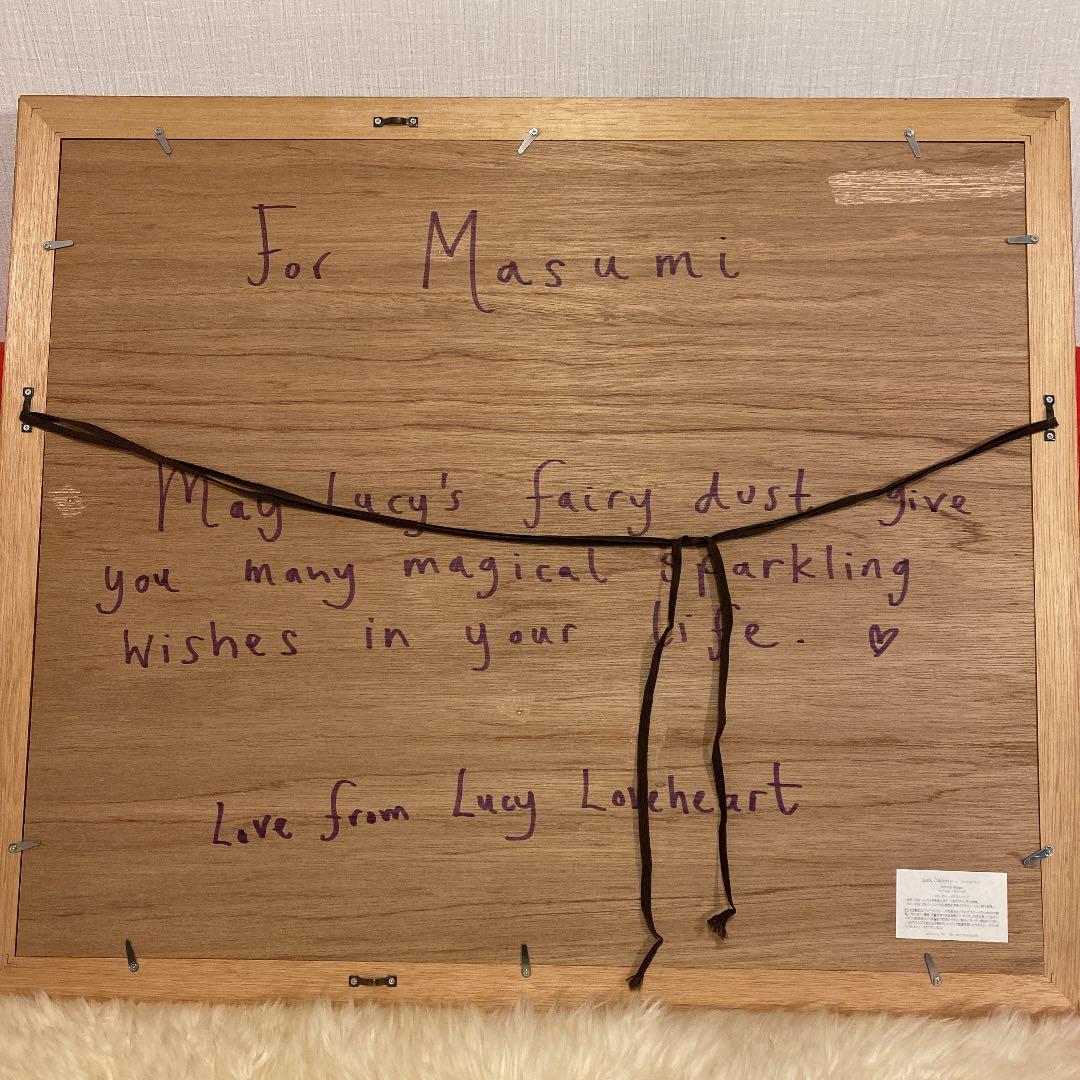 For Masumi
May Lucy's fairy dust give
you many magical sparkling
wishes in your life. ♡
Love from Lucy Loveheart